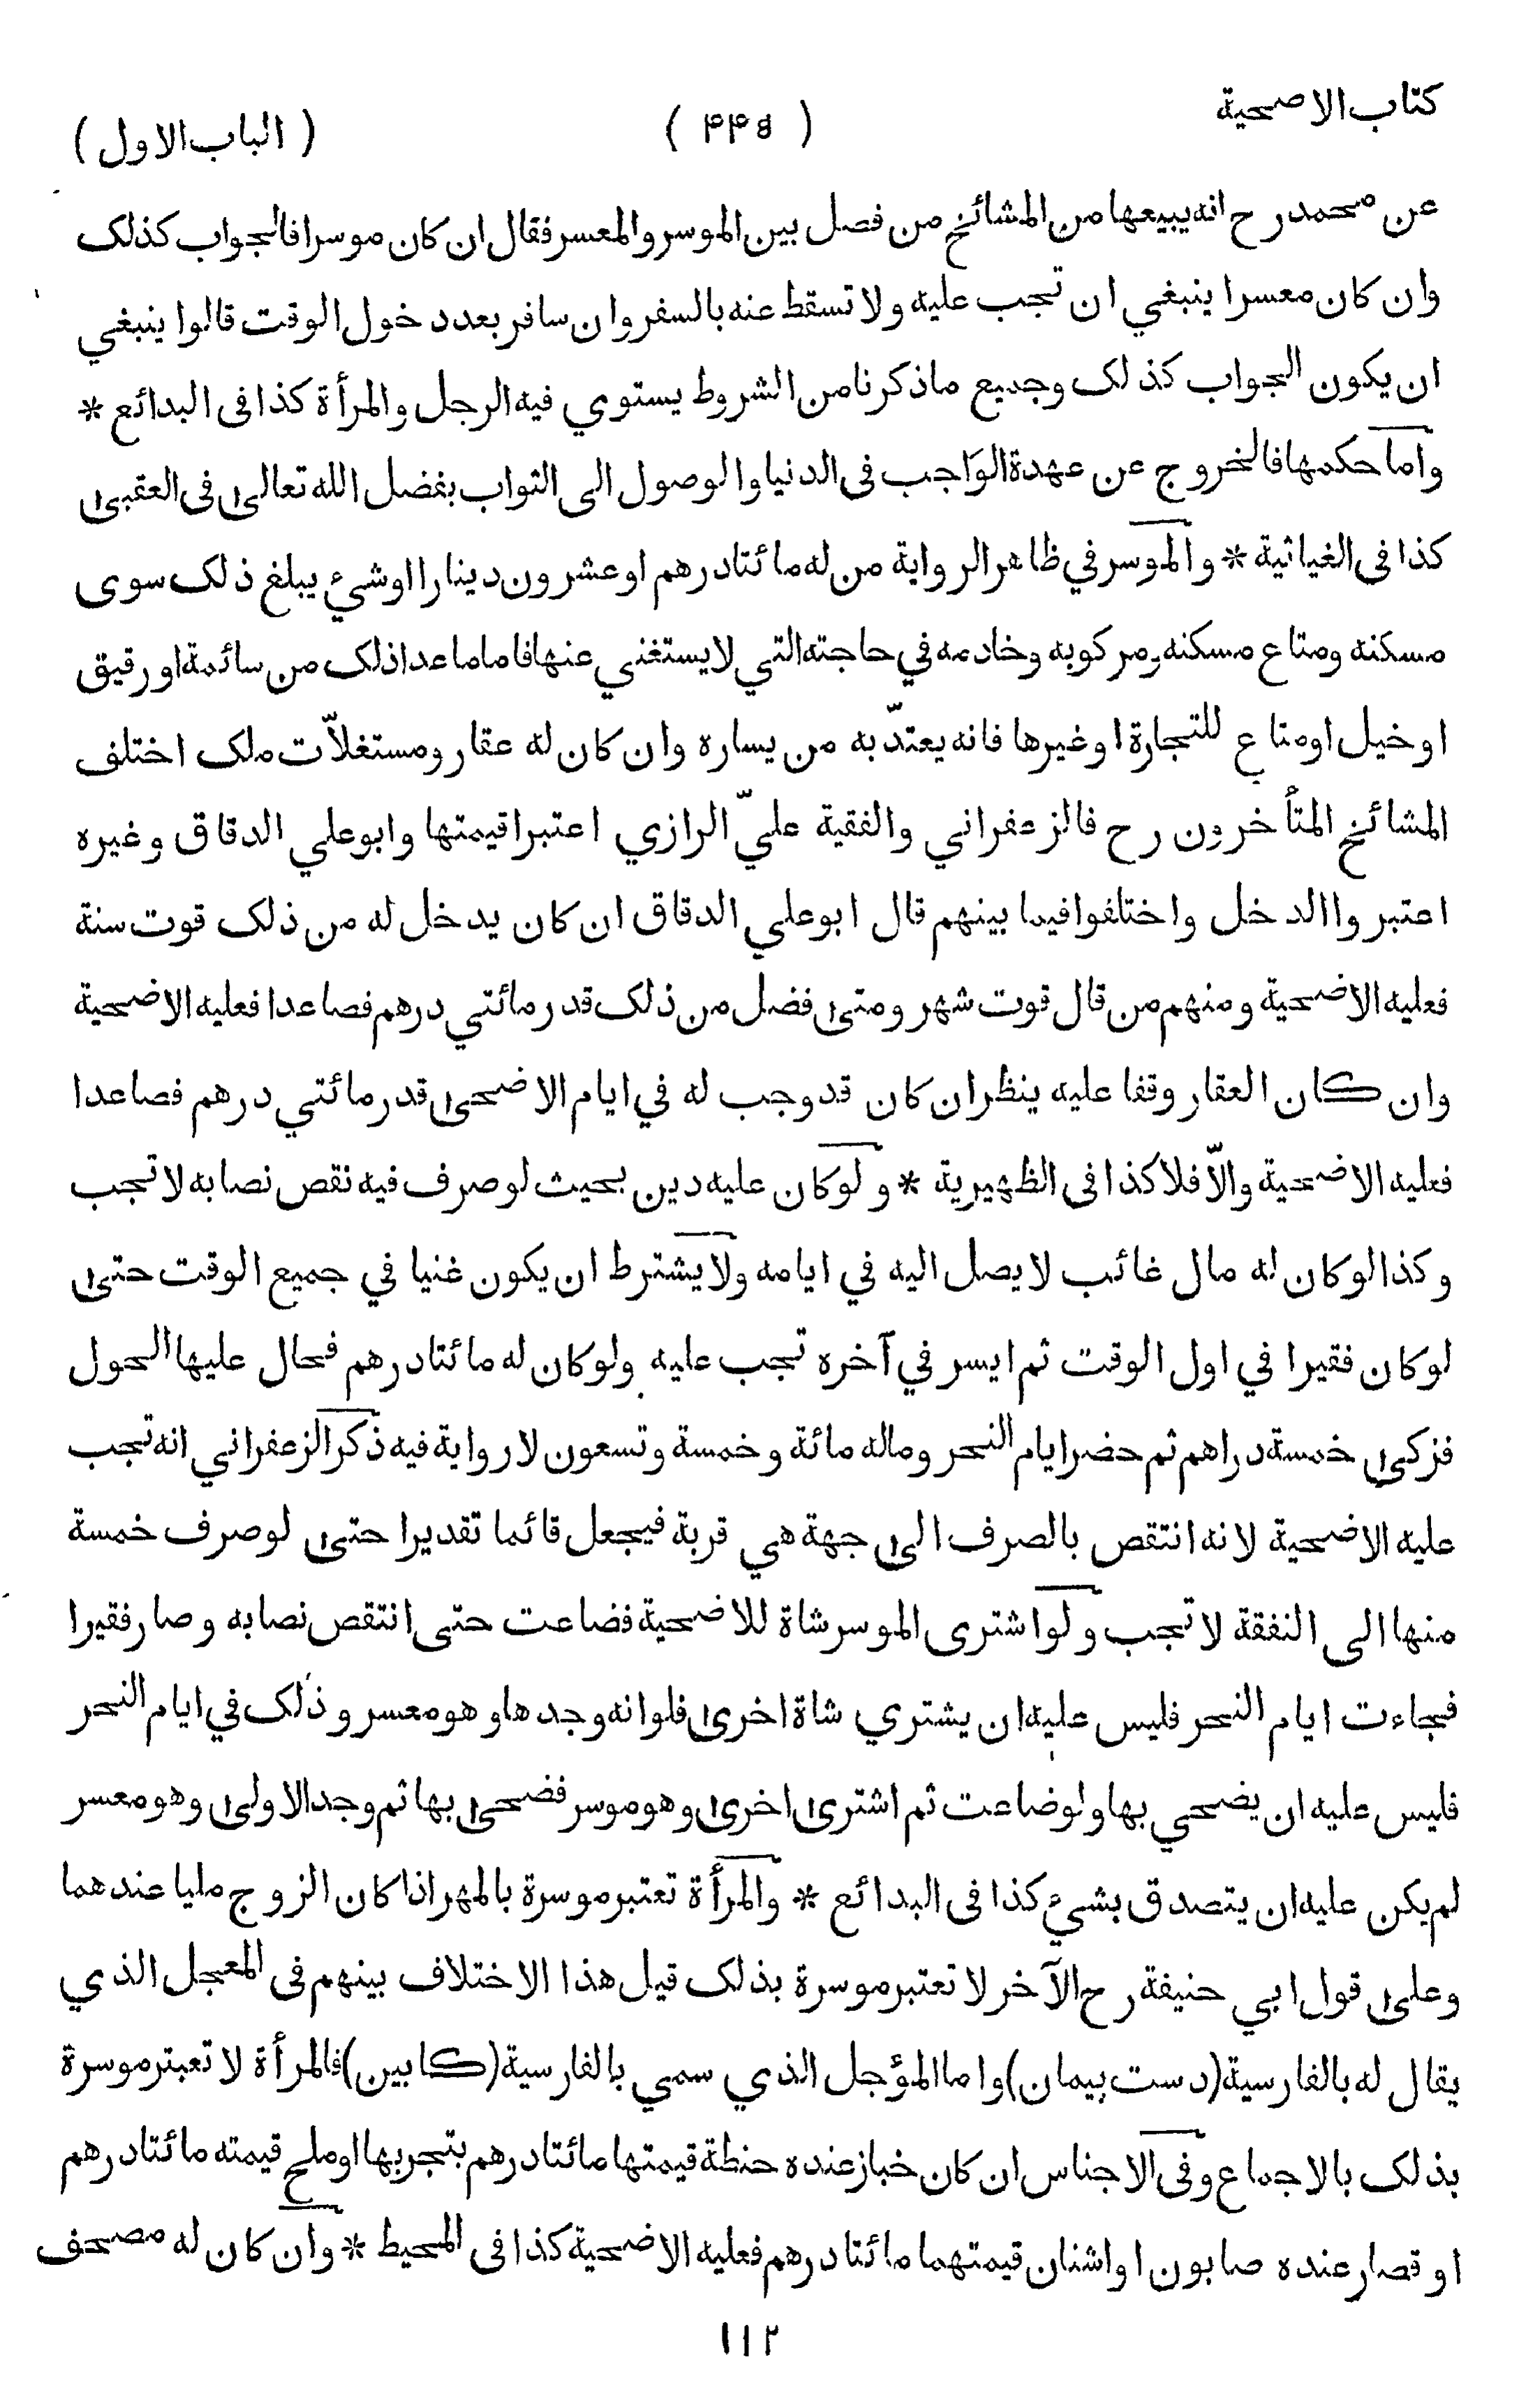 كتاب الاضحية
( ۴۴۵ )
( الباب الاول )
عن محمد رح انه يبيعها من المشائخ من فصل بين الموسر والمعسر فقال ان كان موسرا فالجواب كذلك
وان كان معسرا ينبغي ان تجب عليه ولا تسقط عنه بالسفر وان سافر بعد دخول الوقت قالوا ينبغي
ان يكون الجواب كذلك وجميع ما ذكرنا من الشروط يستوي فيه الرجل والمرأة كذا فى البدائع *
واما حكمها فالخروج عن عهدة الواجب فى الدنيا والوصول الى الثواب بفضل الله تعالى فى العقبى
كذا فى الغياثية * والموسر في ظاهر الرواية من له مائتا درهم او عشرون دينارا او شيء يبلغ ذلك سوى
مسكنه ومتاع مسكنه ومركوبه وخادمه في حاجته التي لا يستغني عنها فاما ما عدا ذلك من سائمة او رقيق
او خيل او متاع للتجارة او غيرها فانه يعتدّ به من يساره وان كان له عقار ومستغلاّت ملك اختلف
المشائخ المتأخرون رح فالزعفراني والفقية عليّ الرازي اعتبرا قيمتها وابو علي الدقاق وغيره
اعتبروا الدخل واختلفوا فيما بينهم قال ابو علي الدقاق ان كان يدخل له من ذلك قوت سنة
فعليه الاضحية ومنهم من قال قوت شهر ومتى فضل من ذلك قدر مائتي درهم فصاعدا فعليه الاضحية
وان كان العقار وقفا عليه ينظر ان كان قد وجب له في ايام الاضحى قدر مائتي درهم فصاعدا
فعليه الاضحية والاّ فلا كذا فى الظهيرية * ولو كان عليه دين بحيث لو صرف فيه نقص نصابه لا تجب
وكذا لو كان له مال غائب لا يصل اليه في ايامه ولا يشترط ان يكون غنيا في جميع الوقت حتى
لو كان فقيرا في اول الوقت ثم ايسر في آخره تجب عليه ولو كان له مائتا درهم فحال عليها الحول
فزكى خمسة دراهم ثم حضر ايام النحر وماله مائة وخمسة وتسعون لا رواية فيه ذكر الزعفراني انه تجب
عليه الاضحية لانه انتقص بالصرف الى جهة هي قربة فيجعل قائما تقديرا حتى لو صرف خمسة
منها الى النفقة لا تجب ولو اشترى الموسر شاة للاضحية فضاعت حتى انتقص نصابه وصار فقيرا
فجاءت ايام النحر فليس عليه ان يشتري شاة اخرى فلو انه وجدها وهو معسر وذلك في ايام النحر
فليس عليه ان يضحي بها ولو ضاعت ثم اشترى اخرى وهو موسر فضحى بها ثم وجد الاولى وهو معسر
لم يكن عليه ان يتصدق بشيء كذا فى البدائع * والمرأة تعتبر موسرة بالمهر اذا كان الزوج مليا عندهما
وعلى قول ابي حنيفة رح الآخر لا تعتبر موسرة بذلك قيل هذا الاختلاف بينهم فى المعجل الذي
يقال له بالفارسية (دست پيمان) واما المؤجل الذي سمي بالفارسية (كابين) فالمرأة لا تعبتر موسرة
بذلك بالاجماع وفى الاجناس ان كان خباز عنده حنطة قيمتها مائتا درهم يتجر بها او ملح قيمته مائتا درهم
او قصار عنده صابون او اشنان قيمتهما مائتا درهم فعليه الاضحية كذا فى المحيط * وان كان له مصحف
١١٢